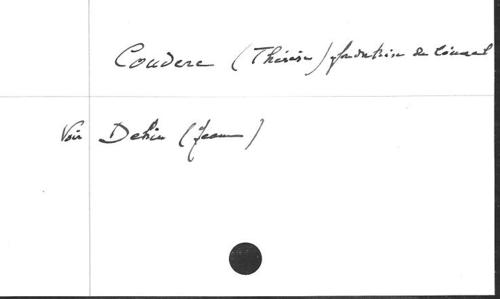 Couderc (Thérèse), fondatrice du Cénacle
Voir Dehin (Jeanne)